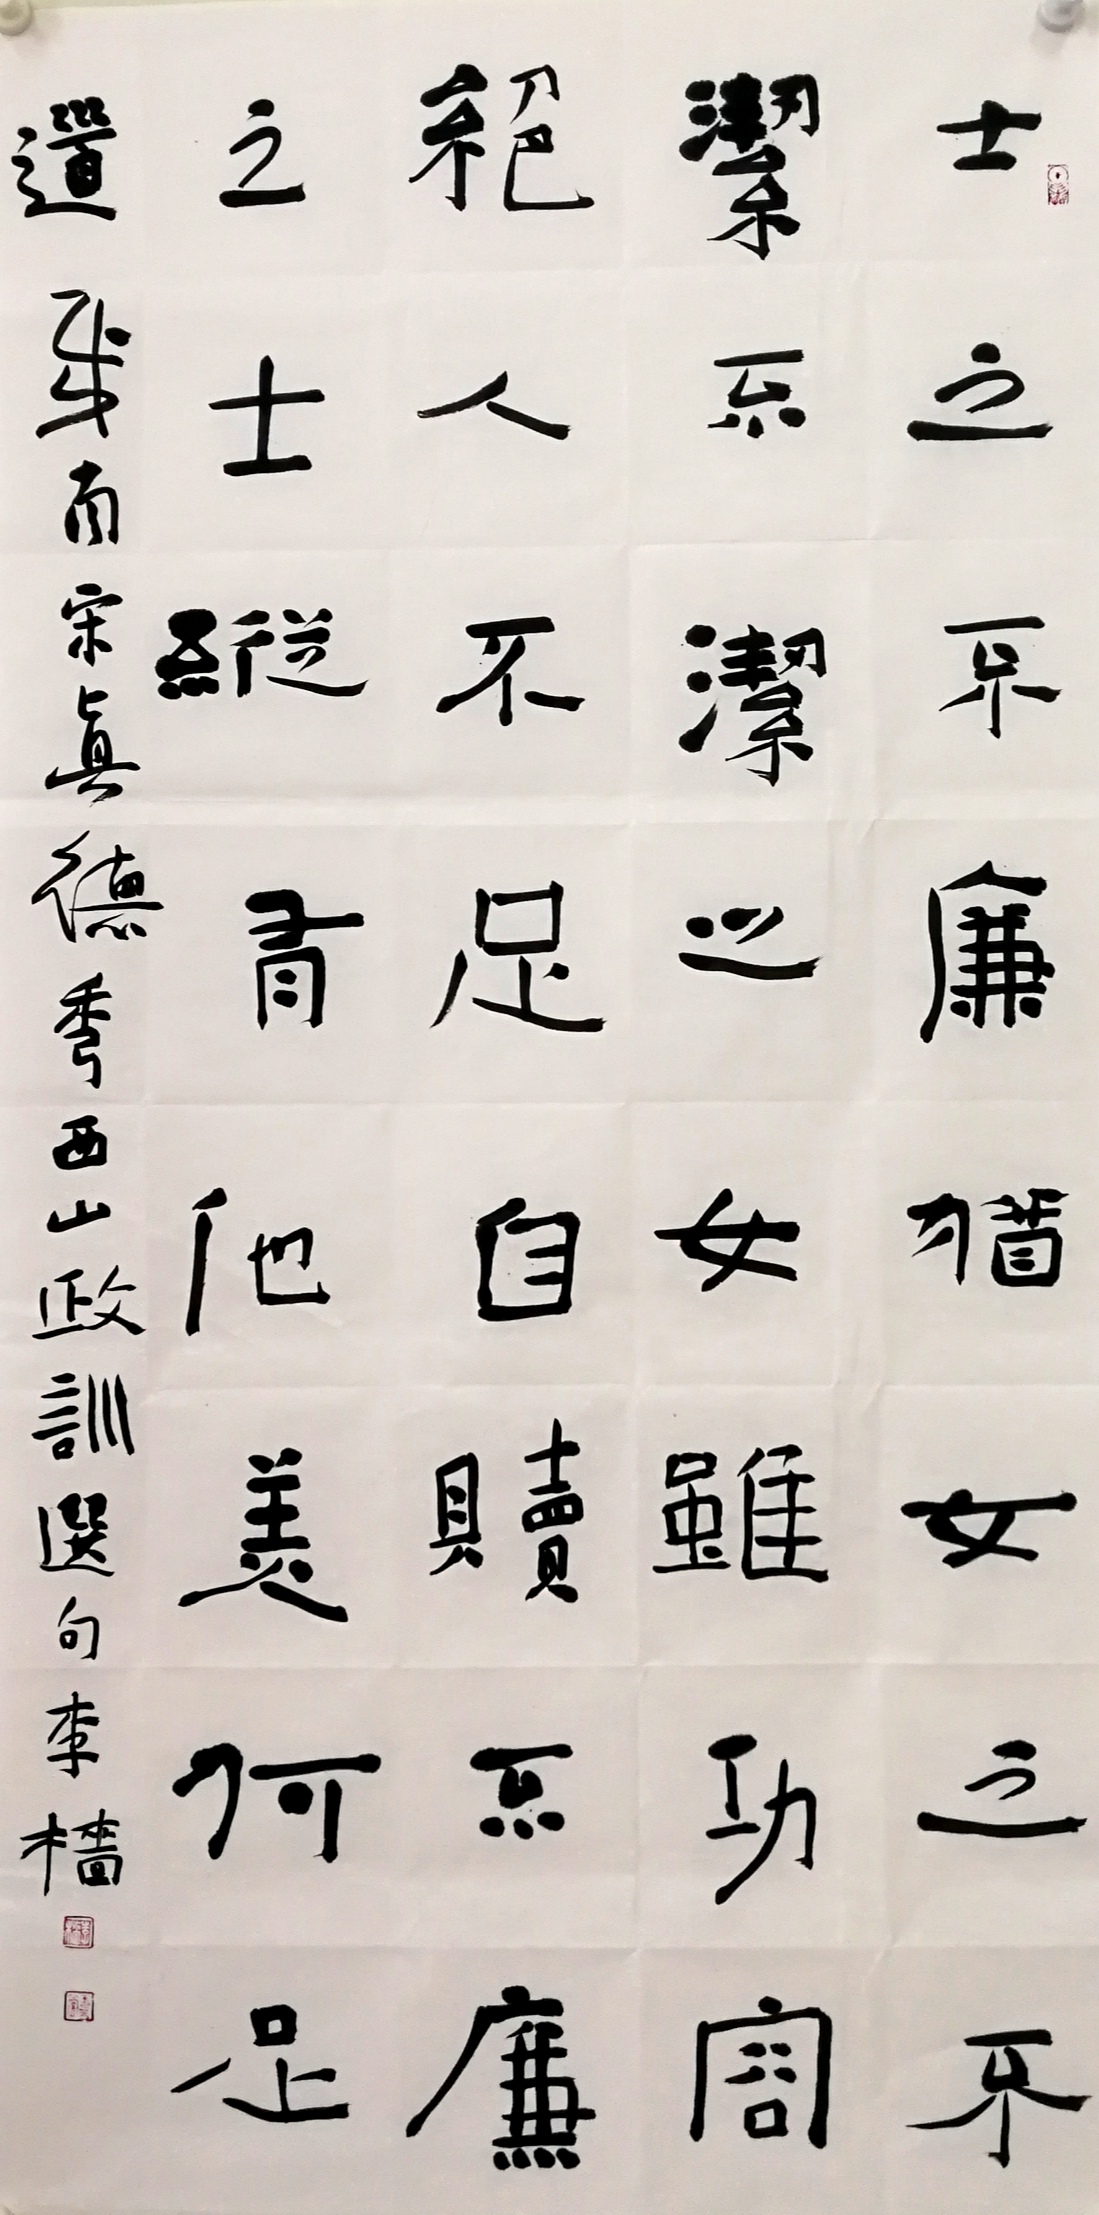 士之不廉猶女之不
潔不潔之女雖功容
絕人不足自贖不廉
之士縱有他美何足
道哉南宋真德秀西山政訓選句李檣